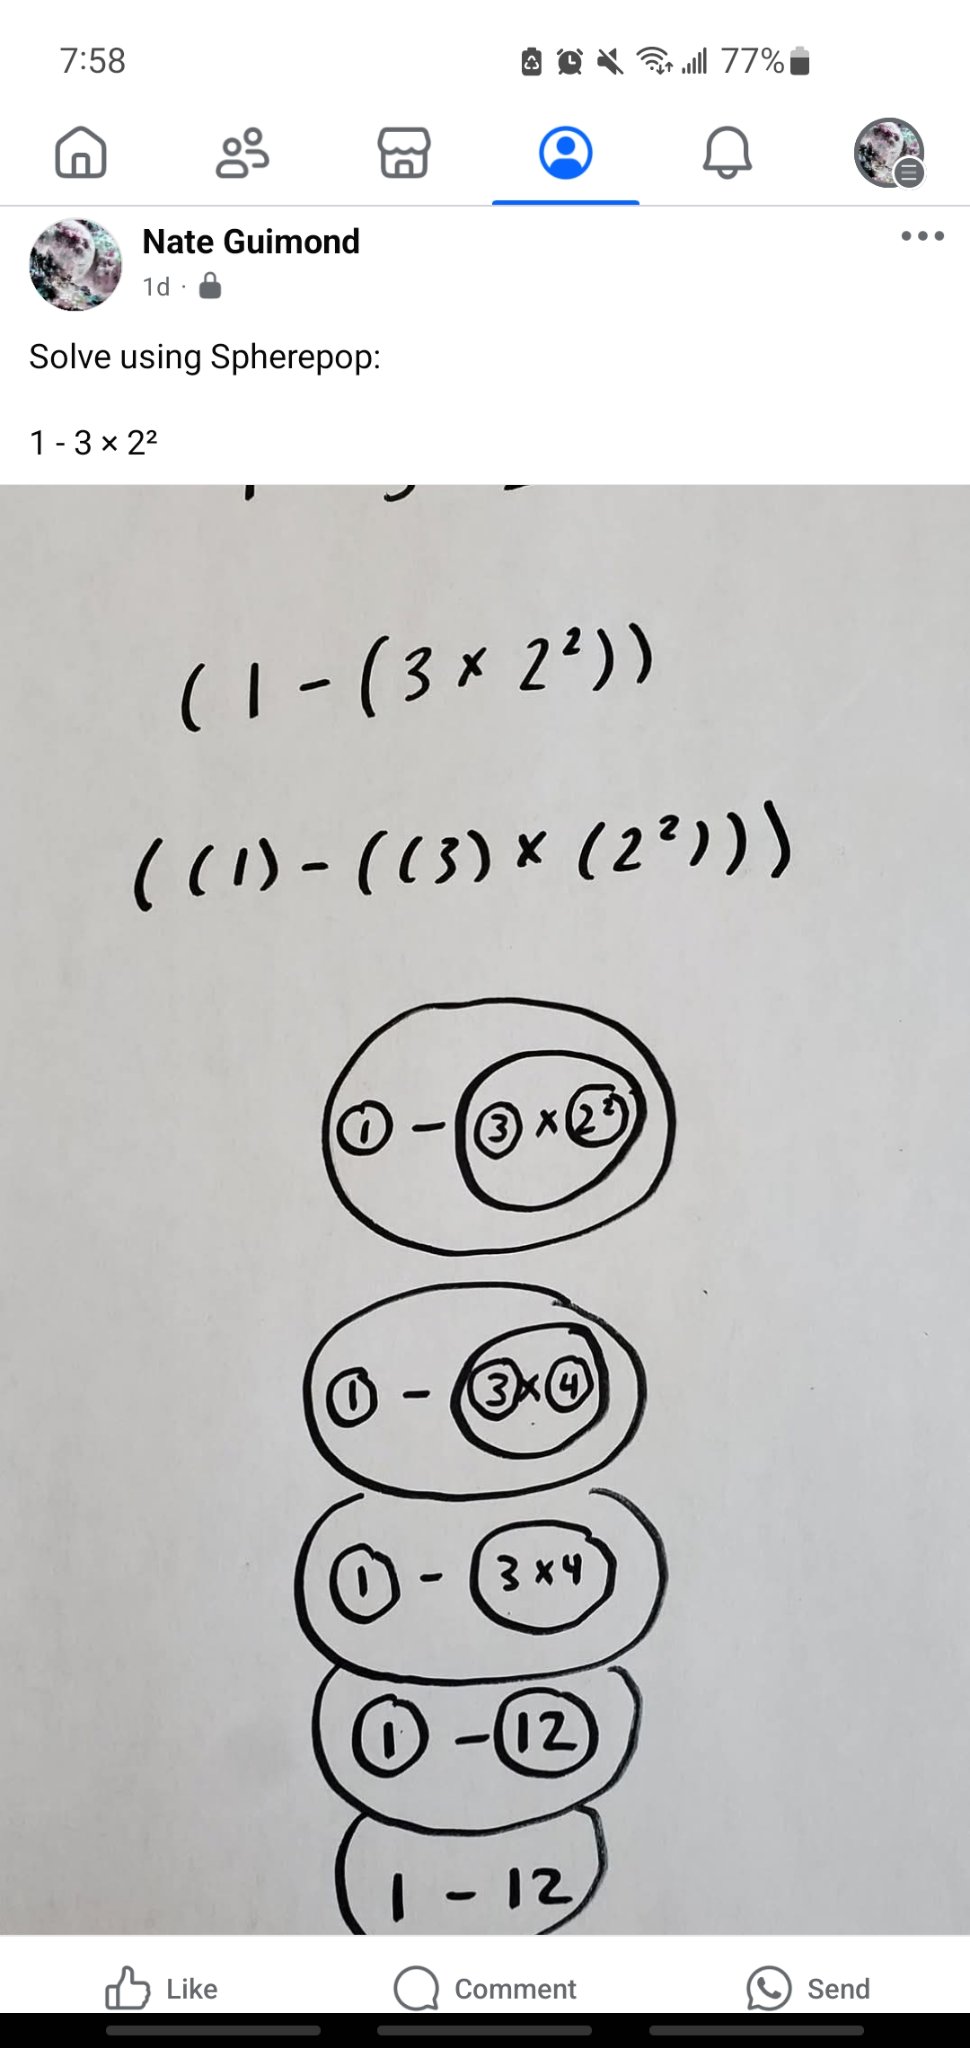 7:58 77%
Nate Guimond
1d ·
Solve using Spherepop:
1 - 3 × 2²
( 1 - ( 3 × 2² ) )
( ( 1 ) - ( ( 3 ) × ( 2² ) ) )
1 - 3 × 2²
1 - 3 × 4
1 - 3 × 4
1 - 12
1 - 12
Like Comment Send